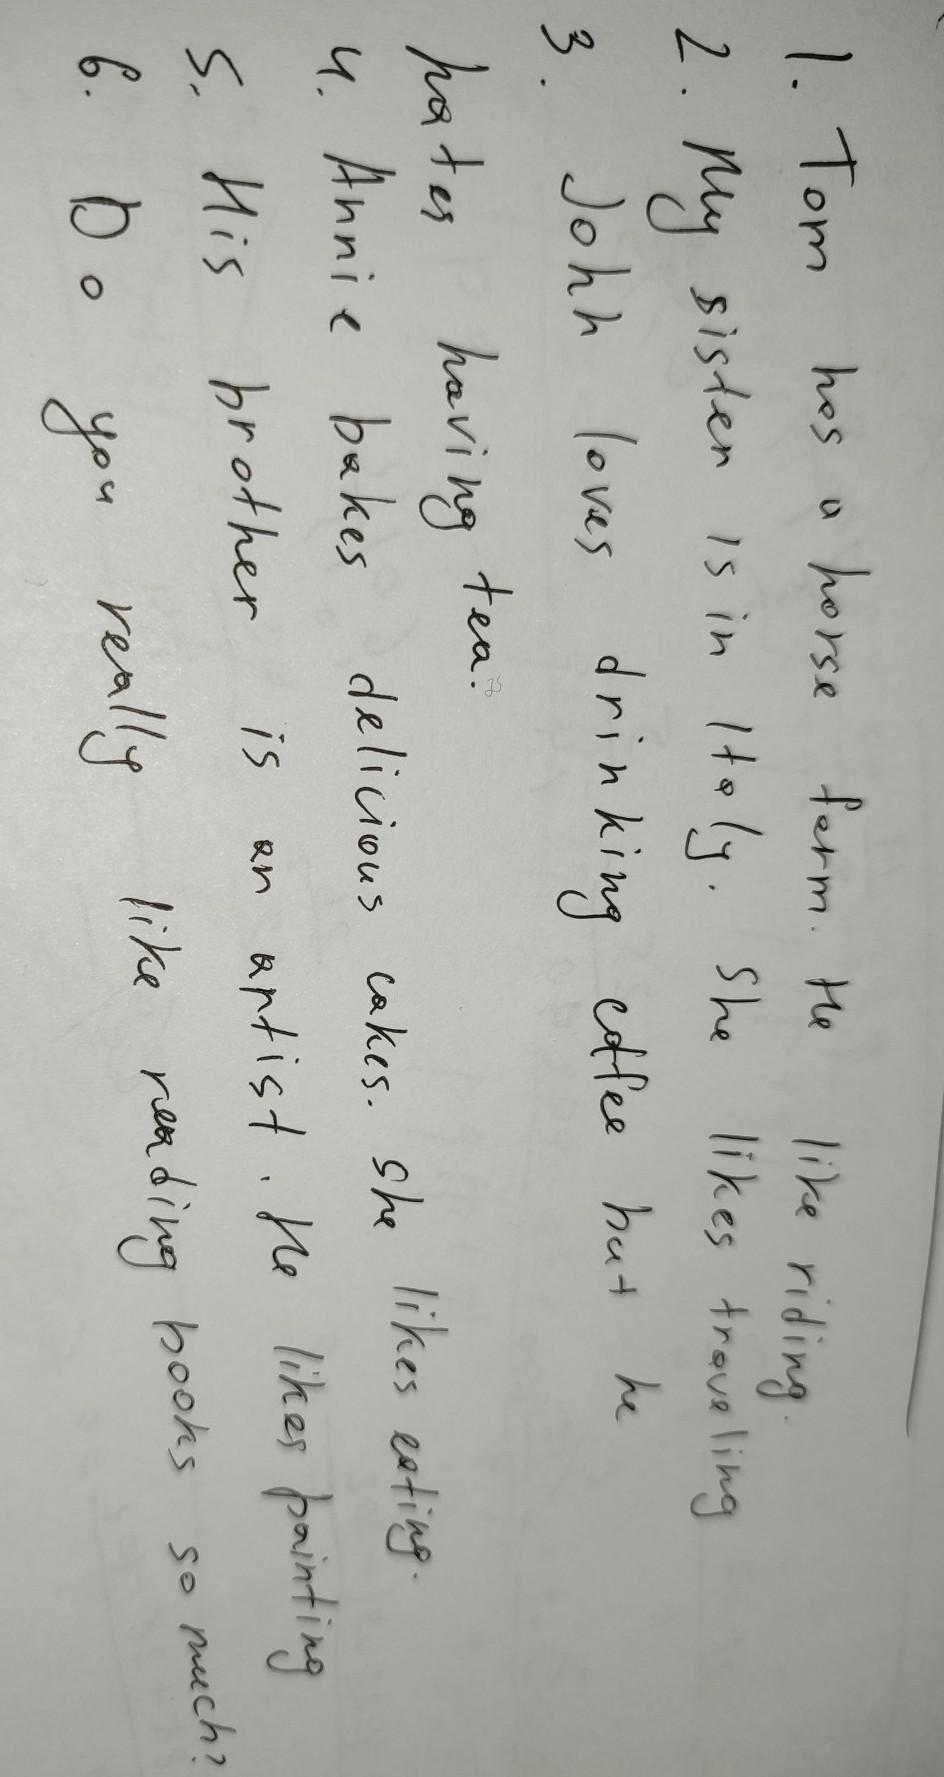 1. Tom has a horse farm. He like riding.
2. My sister is in Italy. She likes traveling
3. John loves drinking coffee but he
hates having tea.
4. Annie bakes delicious cakes. She likes eating.
5. His brother is an artist. He likes painting
6. Do you really like reading books so much?